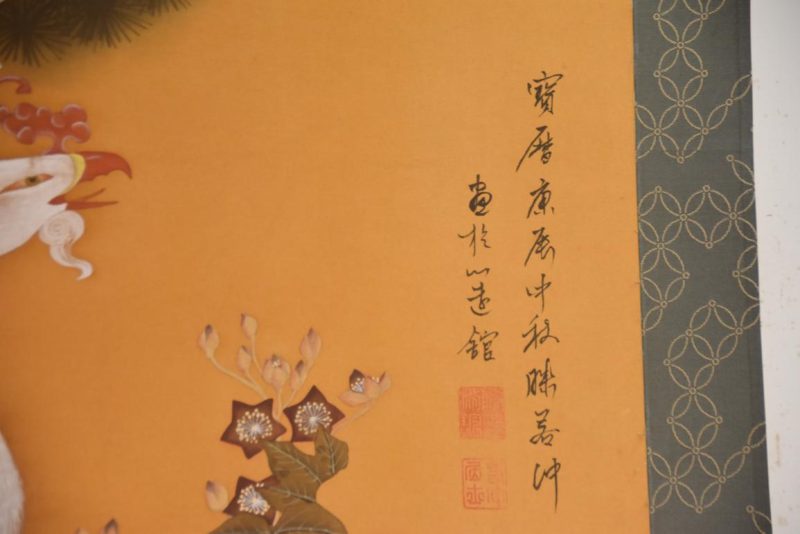 寶暦庚辰中秋滕若冲
畫於心遠館